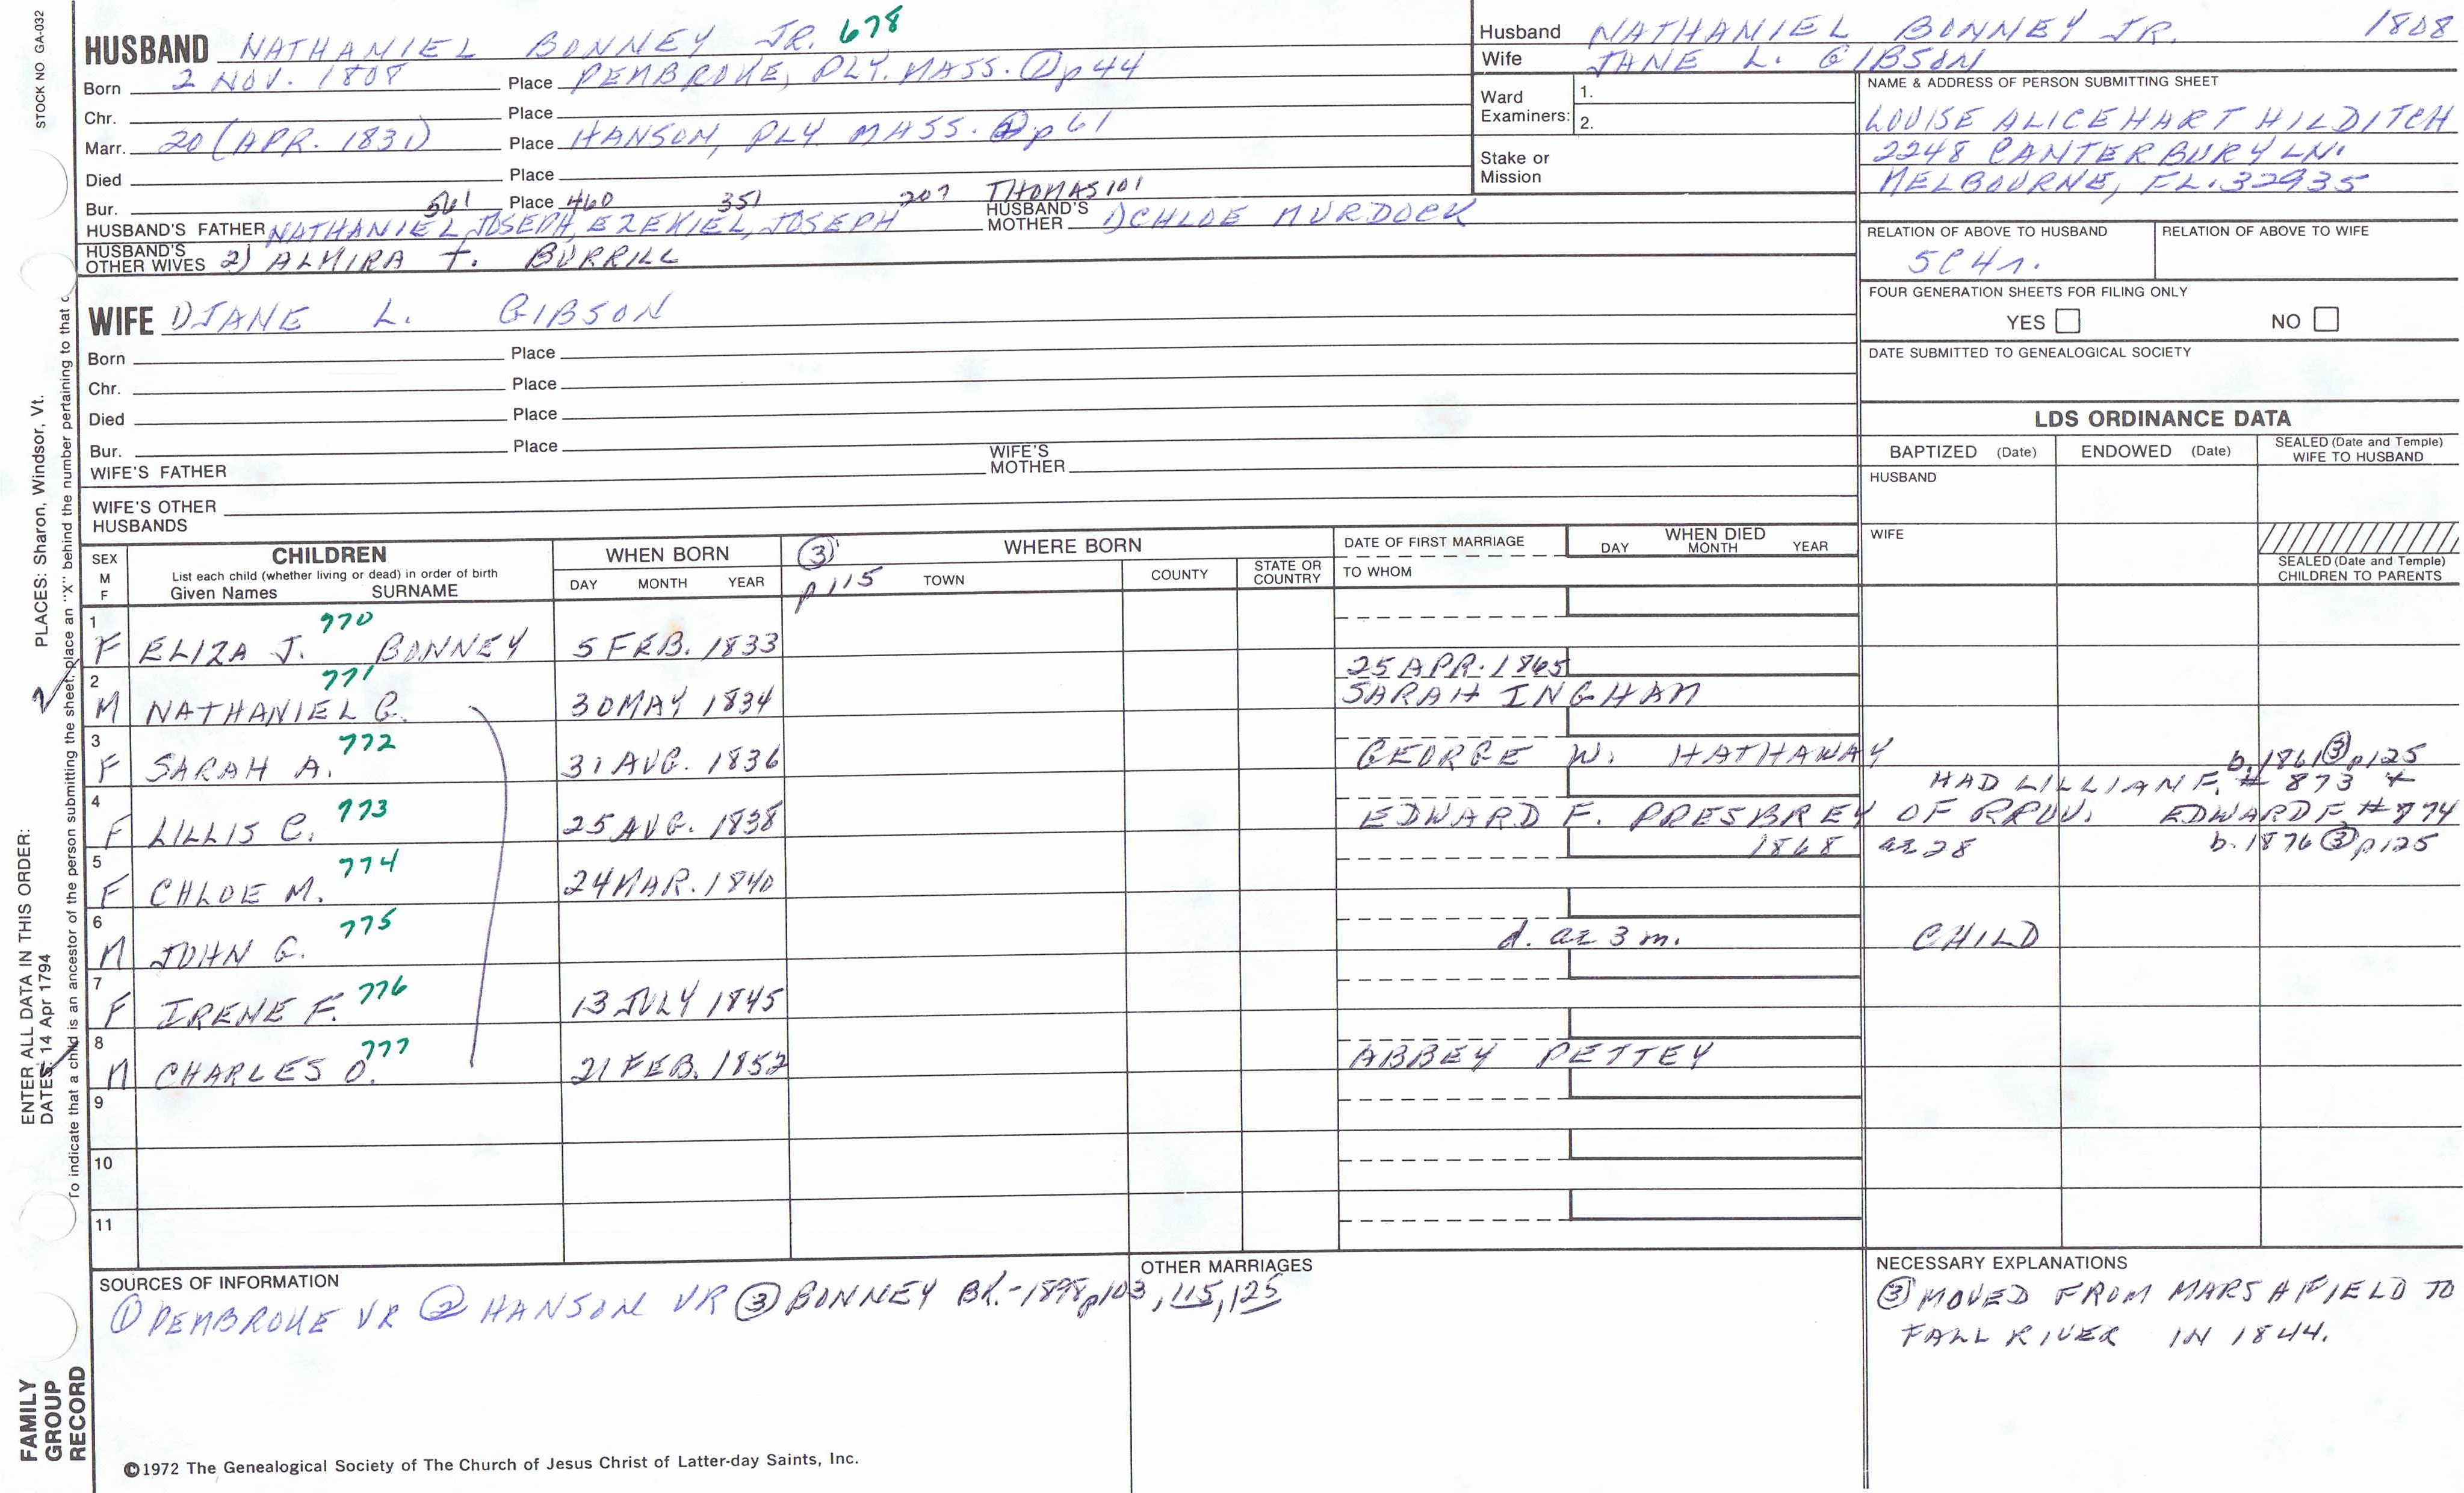 STOCK NO GA-032
HUSBAND NATHANIEL BONNEY JR. 678
Born 2 NOV. 1808 Place PEMBROKE, PLY. MASS. ① p 44
Chr. Place
Marr. 20 (APR. 1831) Place HANSON, PLY. MASS. ② p 61
Died Place
Bur. Place
561 460 351 207 THOMAS 101
HUSBAND'S FATHER NATHANIEL, JOSEPH, EZEKIEL, JOSEPH HUSBAND'S MOTHER 1) CHLOE MURDOCK
HUSBAND'S OTHER WIVES 2) ALMIRA T. BURRILL
WIFE 1) JANE L. GIBSON
Born Place
Chr. Place
Died Place
Bur. Place
WIFE'S FATHER WIFE'S MOTHER
WIFE'S OTHER HUSBANDS
Husband NATHANIEL BONNEY JR. 1808
Wife JANE L. GIBSON
Ward Examiners: 1.
2.
Stake or Mission
NAME & ADDRESS OF PERSON SUBMITTING SHEET
LOUISE ALICE HART HILDITCH
2248 CANTERBURY LN.
MELBOURNE, FL. 32935
RELATION OF ABOVE TO HUSBAND RELATION OF ABOVE TO WIFE
5C4r.
FOUR GENERATION SHEETS FOR FILING ONLY
YES NO
DATE SUBMITTED TO GENEALOGICAL SOCIETY
LDS ORDINANCE DATA
BAPTIZED (Date) ENDOWED (Date) SEALED (Date and Temple) WIFE TO HUSBAND
HUSBAND
WIFE
SEALED (Date and Temple) CHILDREN TO PARENTS
SEX M F CHILDREN WHEN BORN ③ WHERE BORN DATE OF FIRST MARRIAGE WHEN DIED
List each child (whether living or dead) in order of birth
Given Names SURNAME DAY MONTH YEAR p 115 TOWN COUNTY STATE OR COUNTRY TO WHOM DAY MONTH YEAR
1 F ELIZA J. 770 BONNEY 5 FEB. 1833
2 M NATHANIEL G. 771 30 MAY 1834 25 APR. 1865
SARAH INGHAM
3 F SARAH A. 772 31 AUG. 1836 GEORGE W. HATHAWAY b. 1861 ③ p125
HAD LILLIAN F. # 873 +
4 F LILLIS C. 773 25 AUG. 1838 EDWARD F. PRESBREY OF PROV. EDWARD F. # 874
b. 1876 ③ p125
5 F CHLOE M. 774 24 MAR. 1840 1868 ae 28
6 M JOHN G. 775 d. ae 3 m. CHILD
7 F IRENE F. 776 13 JULY 1845
8 M CHARLES O. 777 21 FEB. 1852 ABBEY PETTEY
9
10
11
SOURCES OF INFORMATION
① PEMBROKE VR ② HANSON VR ③ BONNEY BK.-1898 p103, 115, 125
OTHER MARRIAGES
NECESSARY EXPLANATIONS
③ MOVED FROM MARSHFIELD TO
FALL RIVER IN 1844.
©1972 The Genealogical Society of The Church of Jesus Christ of Latter-day Saints, Inc.
FAMILY GROUP RECORD
ENTER ALL DATA IN THIS ORDER:
DATES: 14 Apr 1794
PLACES: Sharon, Windsor, Vt.
To indicate that a child is an ancestor of the person submitting the sheet, place an "X" behind the number pertaining to that